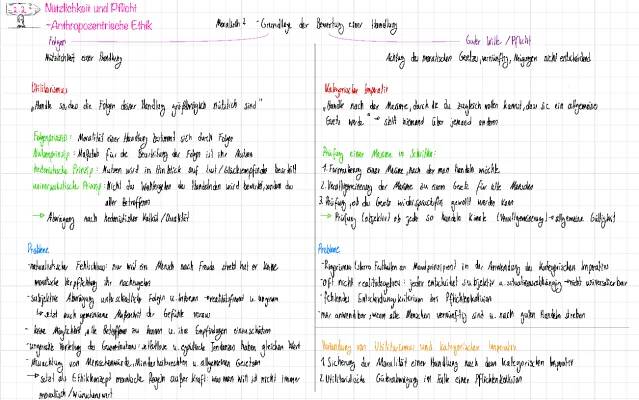 2.2
Nützlichkeit und Pflicht
-Anthropozentrische Ethik
Moralisch? - Grundlage der Bewertung einer Handlung
Folgen
Nützlichkeit einer Handlung
Utilitarismus
"Handle so, dass die Folgen deiner Handlung größtmöglich nützlich sind"
Folgenprinzip: Moralität einer Handlung bestimmt sich durch Folgen
Nutzenprinzip: Maßstab für die Beurteilung der Folgen ist ihr Nutzen
hedonistisches Prinzip: Nutzen wird in Hinblick auf Lust/Glücksempfinden beurteilt
universalistisches Prinzip: Nicht das Wohlergehen des Handelnden wird bewertet, sondern das
aller Betroffenen
→ Abwägung nach hedonistischem Kalkül/Qualität
Probleme
-naturalistischer Fehlschluss: nur weil ein Mensch nach Freude strebt hat er keine
moralische Verpflichtung ihr nachzugehen
-subjektive Abwägung unterschiedlicher Folgen → realitätsfremd u. ungenau
→ setzt auch gemeinsame Maßeinheit der Gefühle voraus
- keine Möglichkeit, alle Betroffenen zu kennen u. ihre Empfindungen einzuschätzen
-ungerechte Verteilung des Gesamtnutzens: altruistische u. egoistische Tendenzen haben gleichen Wert
-Missachtung von Menschenwürde, Minderheitsrechten u. allgemeinen Gesetzen
→ setzt als Ethikkonzept moralische Regeln außer Kraft: was man will ist nicht immer
moralisch/wünschenswert
Guter Wille/Pflicht
Achtung des moralischen Gesetzes, vernünftig, Neigungen nicht entscheidend
Kategorischer Imperativ
"Handle nach der Maxime, durch die du zugleich wollen kannst, dass sie ein allgemeines
Gesetz werde" → stellt niemand über jemand anderen
Prüfung einer Maxime in Schritten:
1. Formulierung einer Maxime, nach der man handeln möchte
2. Verallgemeinerung der Maxime zu einem Gesetz für alle Menschen
3. Prüfung, ob das Gesetz widerspruchsfrei gewollt werden kann
→ Prüfung (objektiv) ob jeder so handeln könnte (Verallgemeinerung) → allgemeine Gültigkeit
Probleme
-Rigorismus (starres Festhalten an Moralprinzipien) in der Anwendung des kategorischen Imperativs
-oft nicht realitätsgetreu: jeder entscheidet subjektiv u. situationsabhängig → nicht universalisierbar
-fehlendes Entscheidungskriterium bei Pflichtenkollision
-nur anwendbar, wenn alle Menschen vernünftig sind u. nach gutem Handeln streben
Verbindung von Utilitarismus und kategorischem Imperativ
1. Sicherung der Moralität einer Handlung nach dem kategorischen Imperativ
2. Utilitaristische Güterabwägung im Falle einer Pflichtenkollision